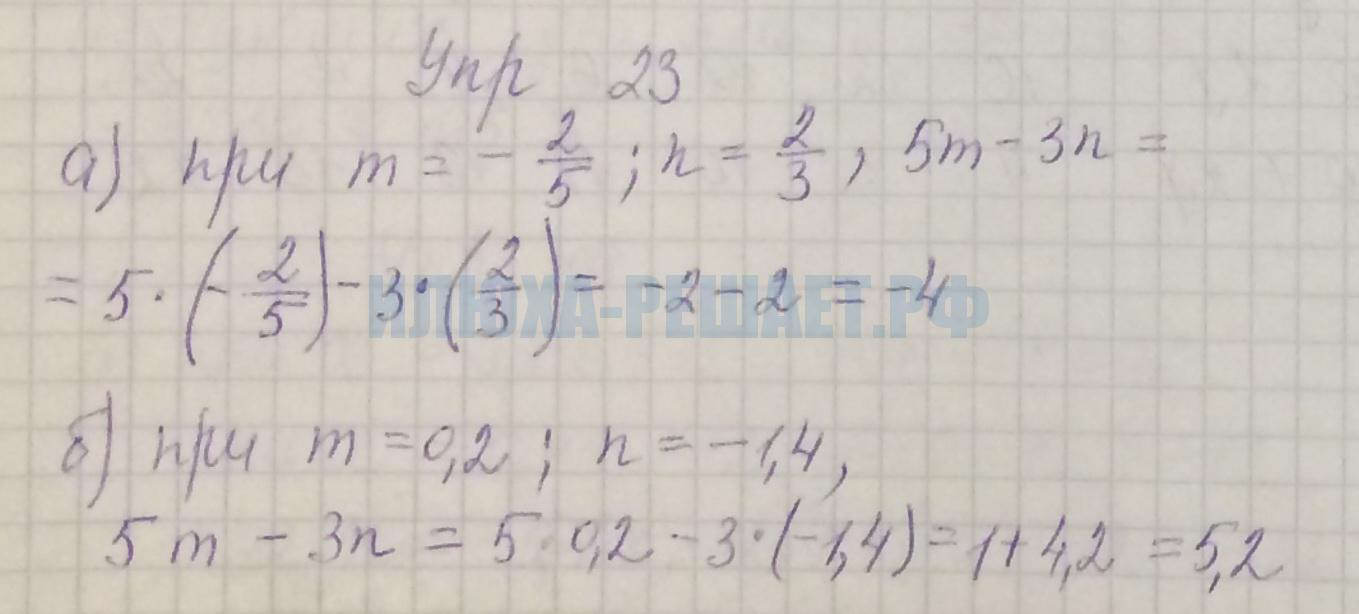 Упр 23
а) при m = - 2/5 ; n = 2/3 , 5m - 3n =
= 5 · (- 2/5) - 3 · (2/3) = -2 - 2 = -4
ИЛЮХА-РЕШАЕТ.РФ
б) при m = 0,2 ; n = -1,4 ,
5m - 3n = 5 · 0,2 - 3 · (-1,4) = 1 + 4,2 = 5,2